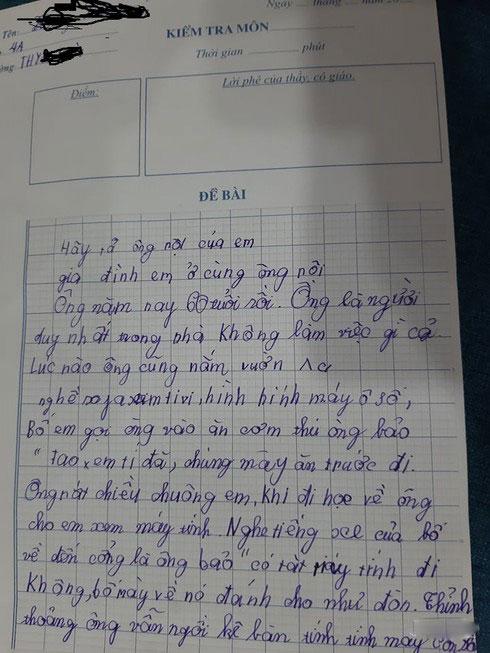 Ngày tháng năm 20
Tên:
4A
KIỂM TRA MÔN
ờng THY
Thời gian phút
Điểm:
Lời phê của thầy, cô giáo.
ĐỀ BÀI
Hãy tả ông nội của em
gia đình em ở cùng ông nội
Ông năm nay 60 tuổi rồi. Ông là người
duy nhất trong nhà Không làm việc gì cả
Lúc nào ông cũng nằm vườn
nghề xem tivi, hình hình máy ô số,
Bố em gọi ông vào ăn cơm thì ông bảo
" Tao xem tí đã, chúng mày ăn trước đi.
Ông rất chiều chuộng em, Khi đi học về ông
cho em xem máy tính. Nghe tiếng xe của bố
về đến cổng là ông bảo " có tắt máy tính đi
Không, bố mày về nó đánh cho như đòn. Thỉnh
thoảng ông vẫn ngồi kê bàn tính tính máy con